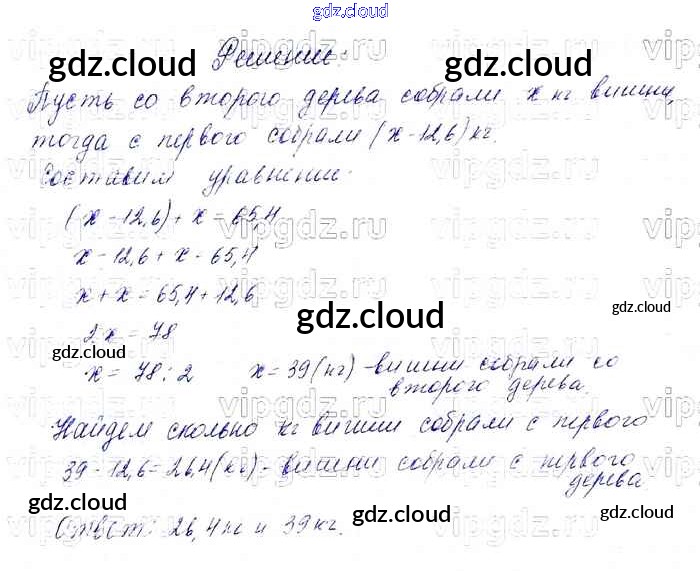 gdz.cloud
Решение:
Пусть со второго дерева собрали x кг вишни,
тогда с первого собрали (x-12,6) кг.
Составим уравнение:
(x-12,6)+x=65,4
x-12,6+x=65,4
x+x=65,4+12,6
2x=78
x=78:2 x=39(кг)-вишни собрали со
второго дерева.
Найдем сколько кг вишни собрали с первого
39-12,6=26,4(кг)-вишни собрали с первого
дерева
Ответ: 26,4кг и 39кг.
gdz.cloud
gdz.cloud
gdz.cloud
gdz.cloud
gdz.cloud
gdz.cloud
gdz.cloud
gdz.cloud
vipgdz.ru